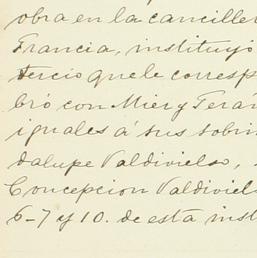 obra en la canciller
Francia, instituyó
tercio que le corresp
bró con Mier y Terán
iguales á sus sobrin
dalupe Valdivielso,
Concepcion Valdiviels
6-7 y 10. de esta inst